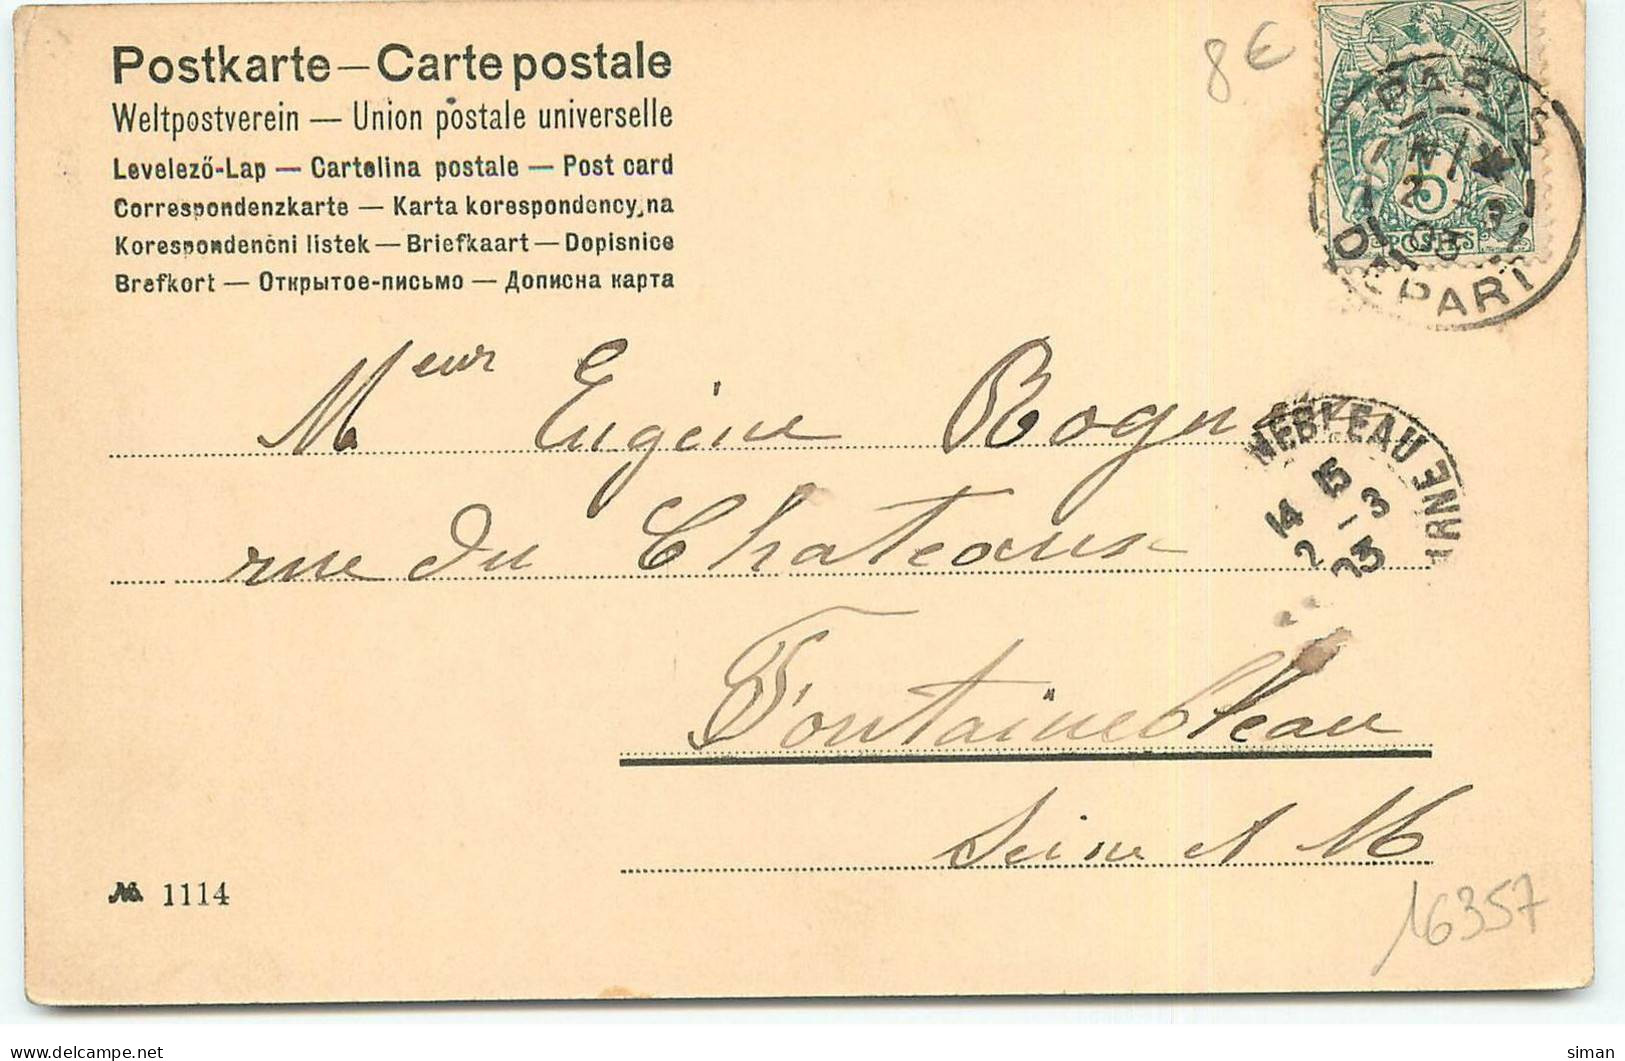 Postkarte — Carte postale
Weltpostverein — Union postale universelle
Levelező-Lap — Cartolina postale — Post card
Correspondenzkarte — Karta korespondencyjna
Korespondenční listek — Briefkaart — Dopisnice
Brefkort — Открытое-письмо — Дописна карта
8 €
PARIS
2 -3
03
DEPART
POSTES
5
Meur Eugène
rue du Chateaux
Fontainebleau
Seine et M
NEBLEAU
14 15
2 - 3
03
No. 1114
16357
www.delcampe.net
siman